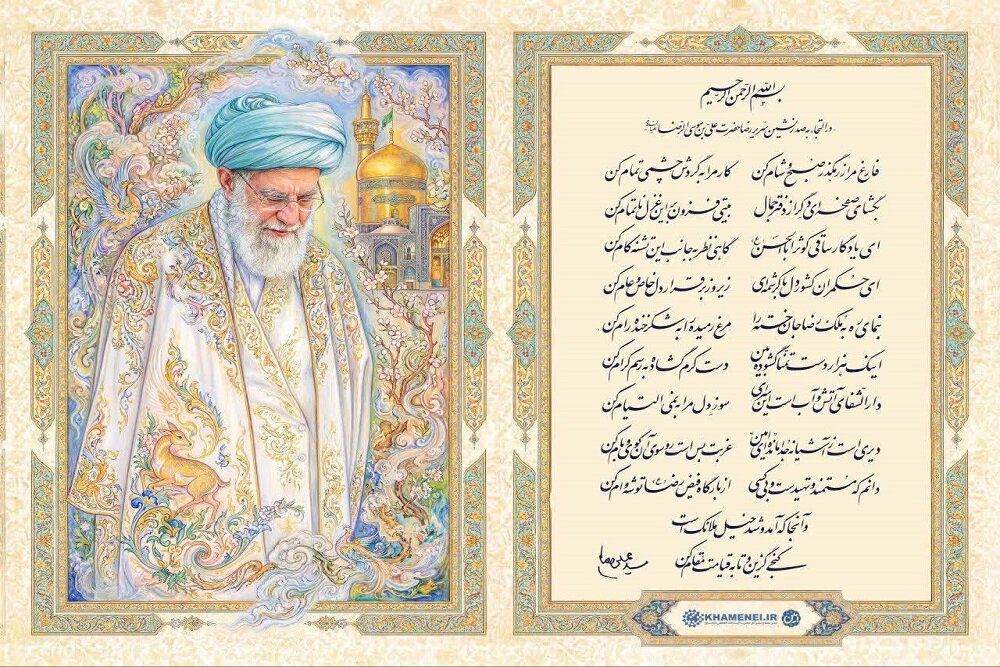 بسم الله الرحمن الرحیم
در التجا به صدرنشین سریر رضا حضرت علی بن موسی الرضا علیه‌السلام
فارغ مرا ز رهگذر صبح و شام کن کار مرا به گردش چشمی تمام کن
بگشای صفحه‌ای دگر از دفتر جمال بیتی فزون بر این غزل ناتمام کن
ای یادگار ساقی کوثر اباالحسن گاهی نظر به جانب این تشنه کام کن
ای حکمران کشور دل با کرشمه‌ای زیر و زبر قرار دل خاص و عام کن
بنمای ره به ملک رضا جان خسته را مرغ رمیده را به شکرخنده رام کن
اینک هزار دست تمنا گشوده بین دست کرم گشاده به رسم کرام کن
دارالشفای آتش و آب است این سرای سوز دل مرا به نمی التیام کن
دیری است ز آشیانه جدا مانده‌ای امین غربت بس است رو سوی آن کوی و بام کن
دانم که مستمند و تهیدست و بی‌کسی از بارگاه فیض رضا توشه وام کن
وآنجا که آمد و شد خیل ملائک است
کنجی گزین و تا به قیامت مقام کن
سید علی خامنه‌ای
KHAMENEI.IR